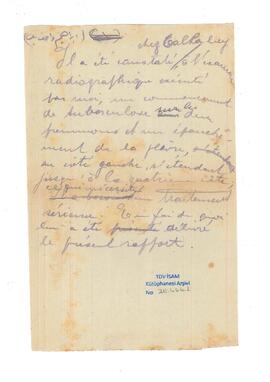 chez Cal
Il a été constaté, à l'examen
radiographique exécuté
par moi, un commencement
de tuberculose sur les deux
poumons et un épanche-
ment de la plèvre,
au côté gauche, s'étendant
jusqu'à la quatrième côte,
ce qui nécessite
traitement
sérieuse. En foi de quoi
lui a été délivré
le présent rapport.
TDV İSAM
Kütüphanesi Arşivi
No